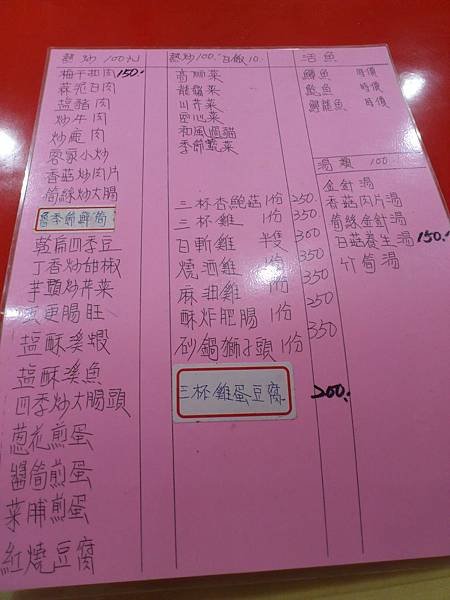 熱炒 100元
梅干扣肉 150.
蒜泥白肉
塩豬肉
炒牛肉
炒鹿肉
客家小炒
香菇炒肉片
筍絲炒大腸
當季節鮮筍
乾扁四季豆
丁香炒甜椒
芋頭炒芹菜
韭更腸旺
塩酥溪蝦
塩酥溪魚
四季炒大腸頭
蔥花煎蛋
醬筍煎蛋
菜脯煎蛋
紅燒豆腐
熱炒100. 白飯10.
高麗菜
龍鬚菜
山芹菜
空心菜
和風過貓
季節蔬菜
三杯杏鮑菇 1份 250.
三杯雞 1份 300
白斬雞 半隻 300
燒酒雞 1份 350
麻油雞 1份 350
酥炸肥腸 1份 250
砂鍋獅子頭 1份 350
三杯雞蛋豆腐 200.
活魚
鱒魚 時價
魚 時價
魚 時價
湯類 100
金針湯
香菇肉片湯
筍絲金針湯
白菇養生湯 150.
竹筍湯